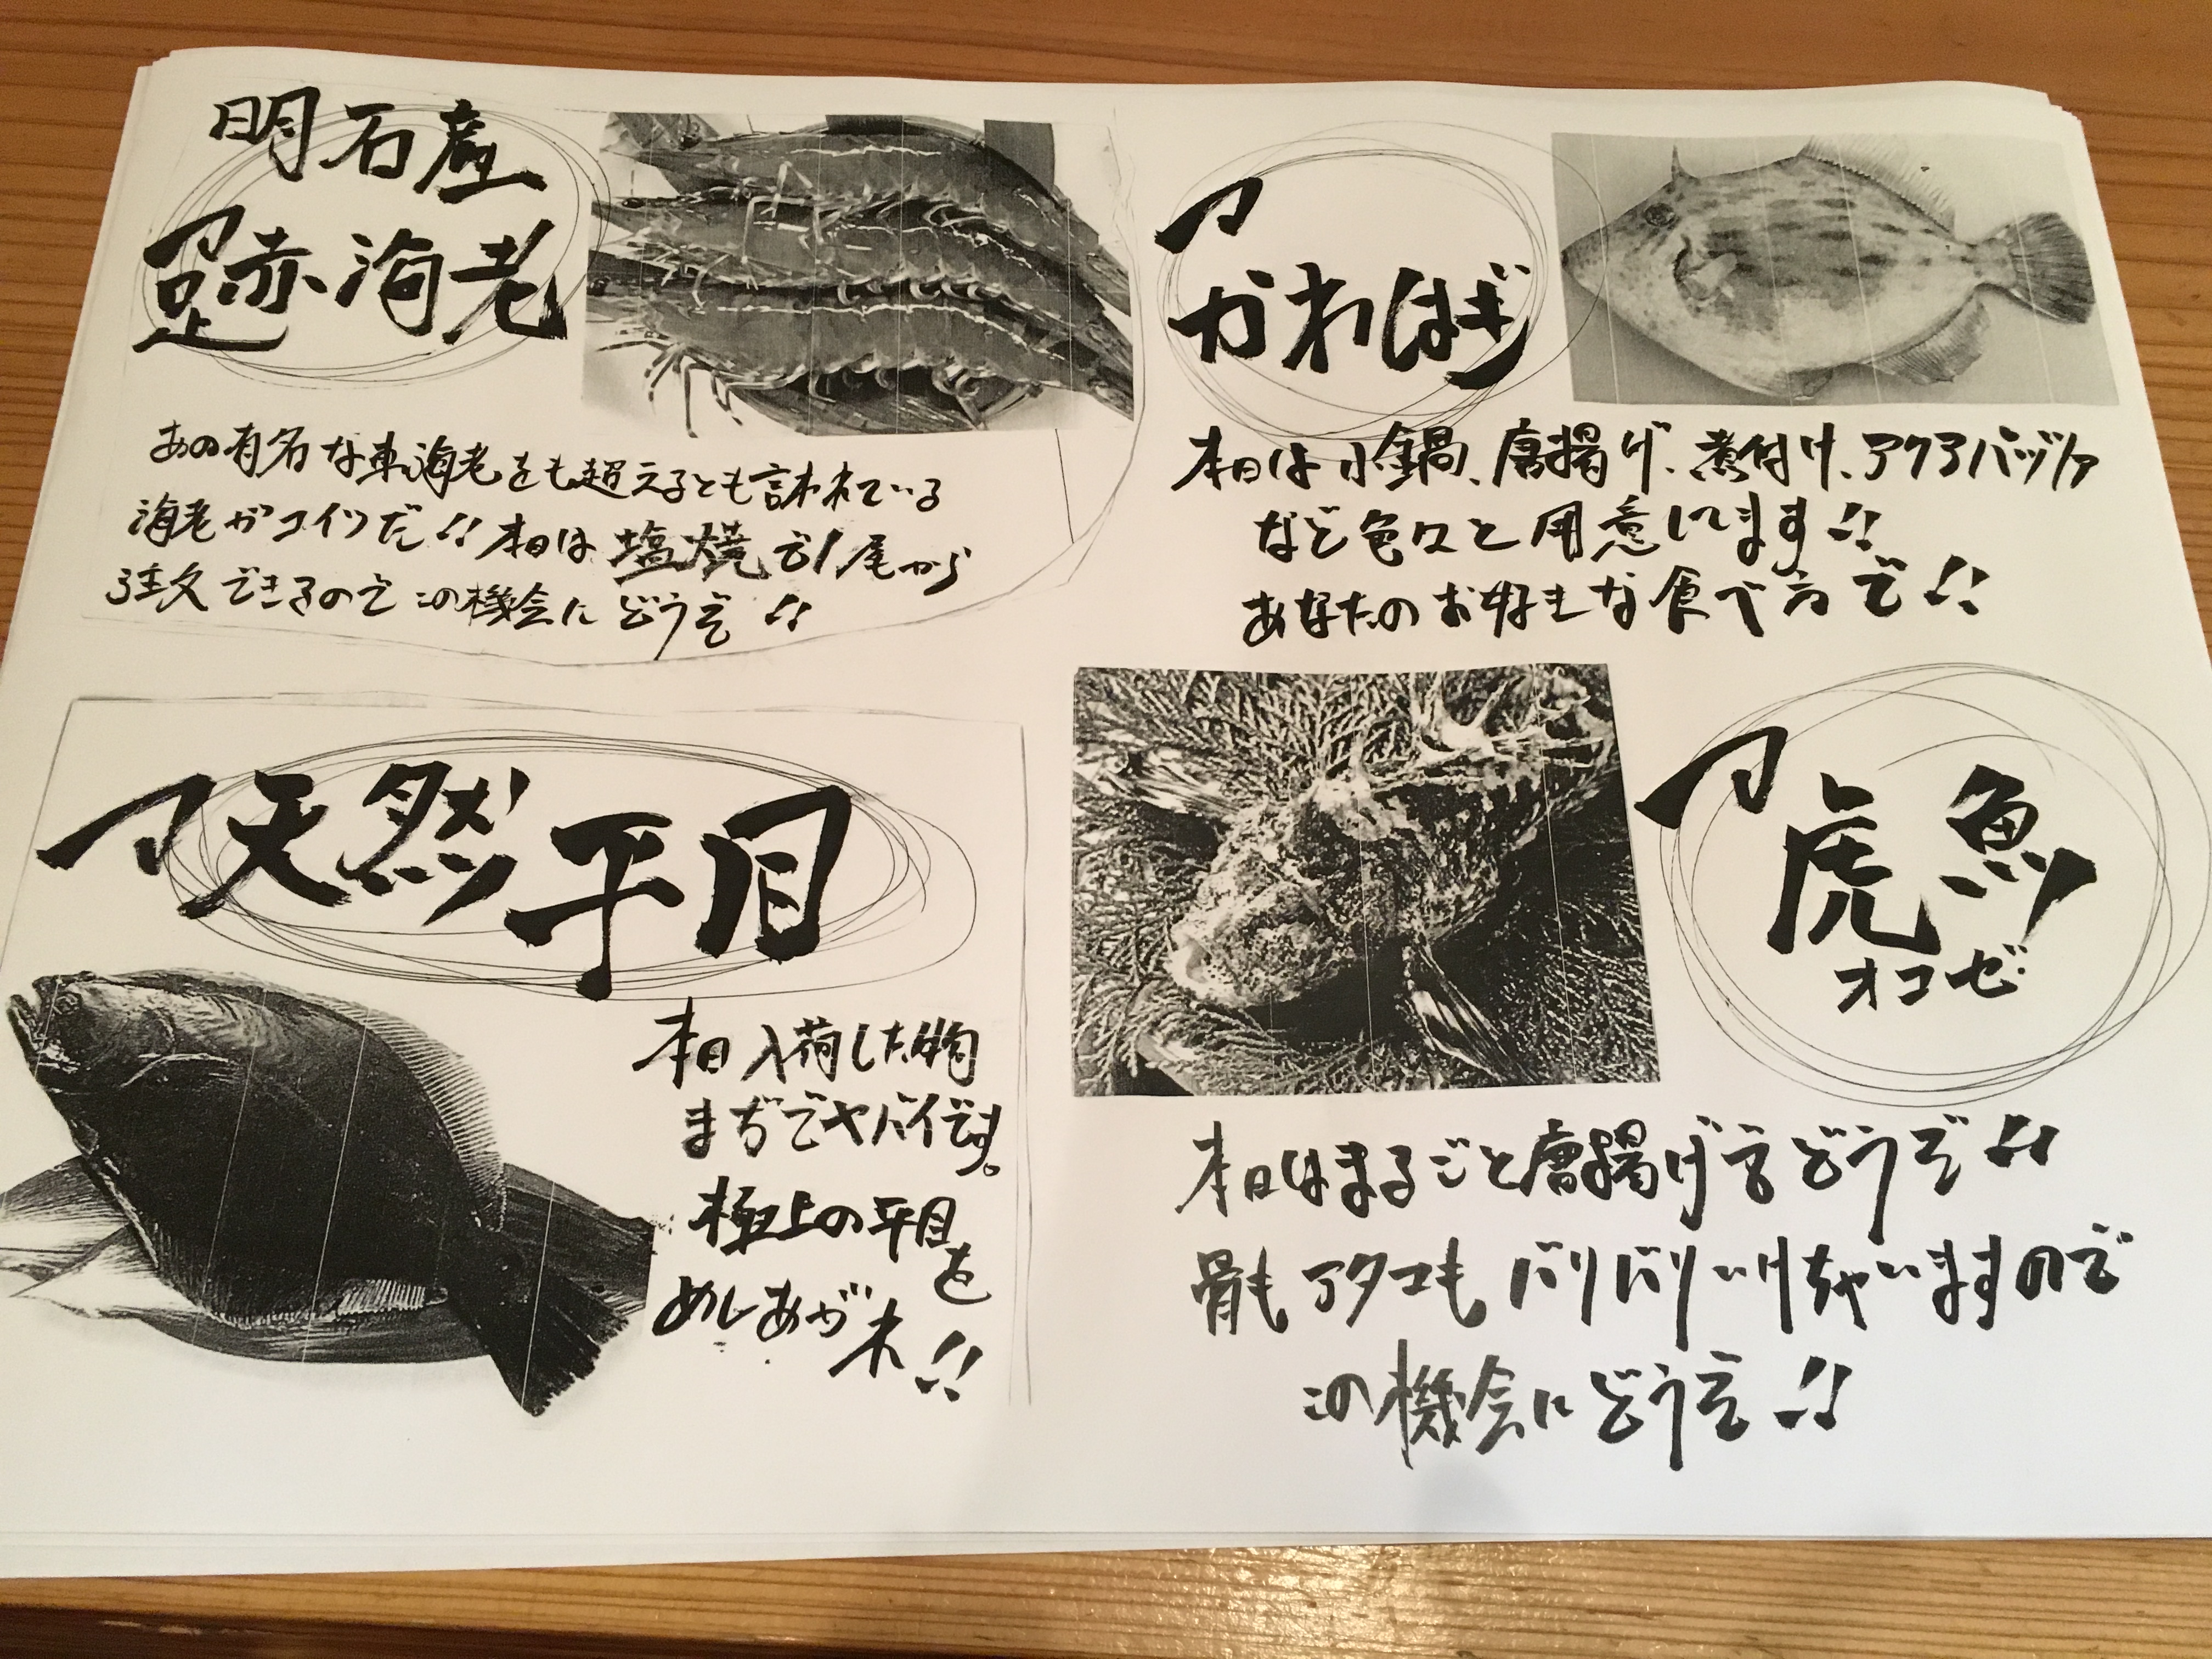 明石産
足赤海老
あの有名な車海老をも超えるとも言われている
海老がコイツだ!! 本日は塩焼で1尾から
注文できるのでこの機会にどうぞ!!
かわはぎ
本日は小鍋、唐揚げ、煮付け、アクアパッツァ
など色々と用意してます!!
あなたのお好きな食べ方で!!
天然平目
本日入荷した物
まぢでヤバイです。
極上の平目を
めしあがれ!!
虎魚
オコゼ
本日はまるごと唐揚げでどうぞ!!
骨もアタマもバリバリいけちゃいますので
この機会にどうぞ!!